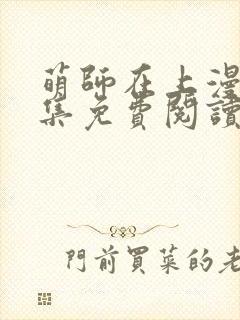 萌師在上漫
集免費閱讀
門前買菜的老